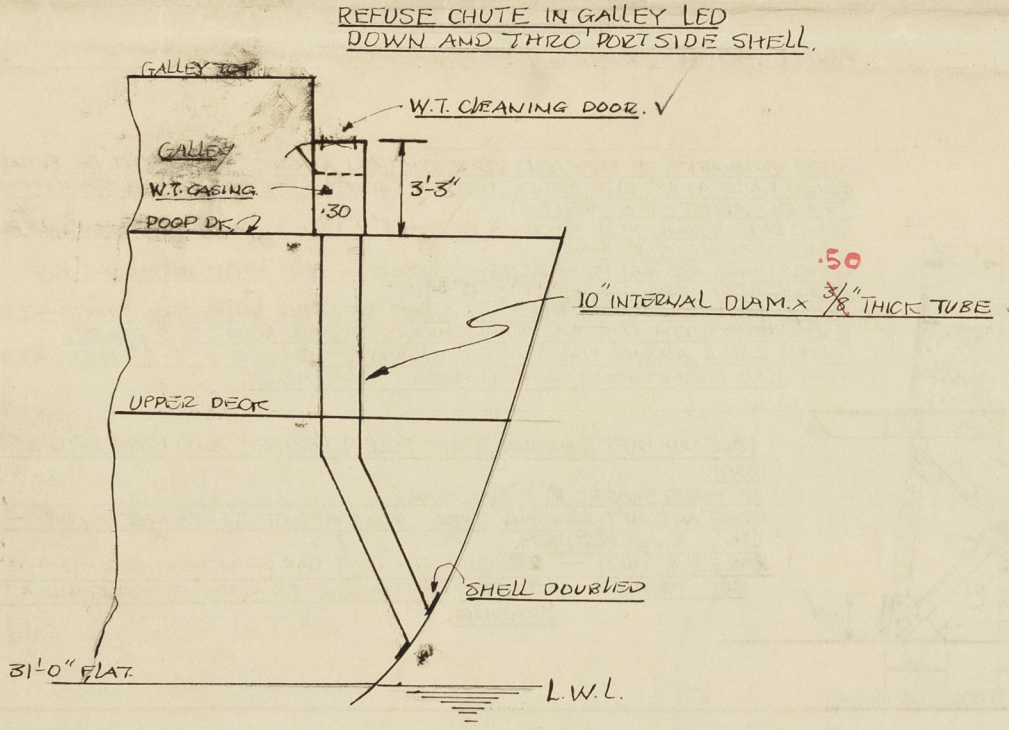 REFUSE CHUTE IN GALLEY LED
DOWN AND THRO' PORTSIDE SHELL.
GALLEY TOP
W.T. CLEANING DOOR. ✓
GALLEY
W.T. CASING
3'-3"
.30
POOP DK.
.50
10" INTERNAL DIAM. x 3/8" THICK TUBE
UPPER DECK
SHELL DOUBLED
31'-0" FLAT.
L.W.L.